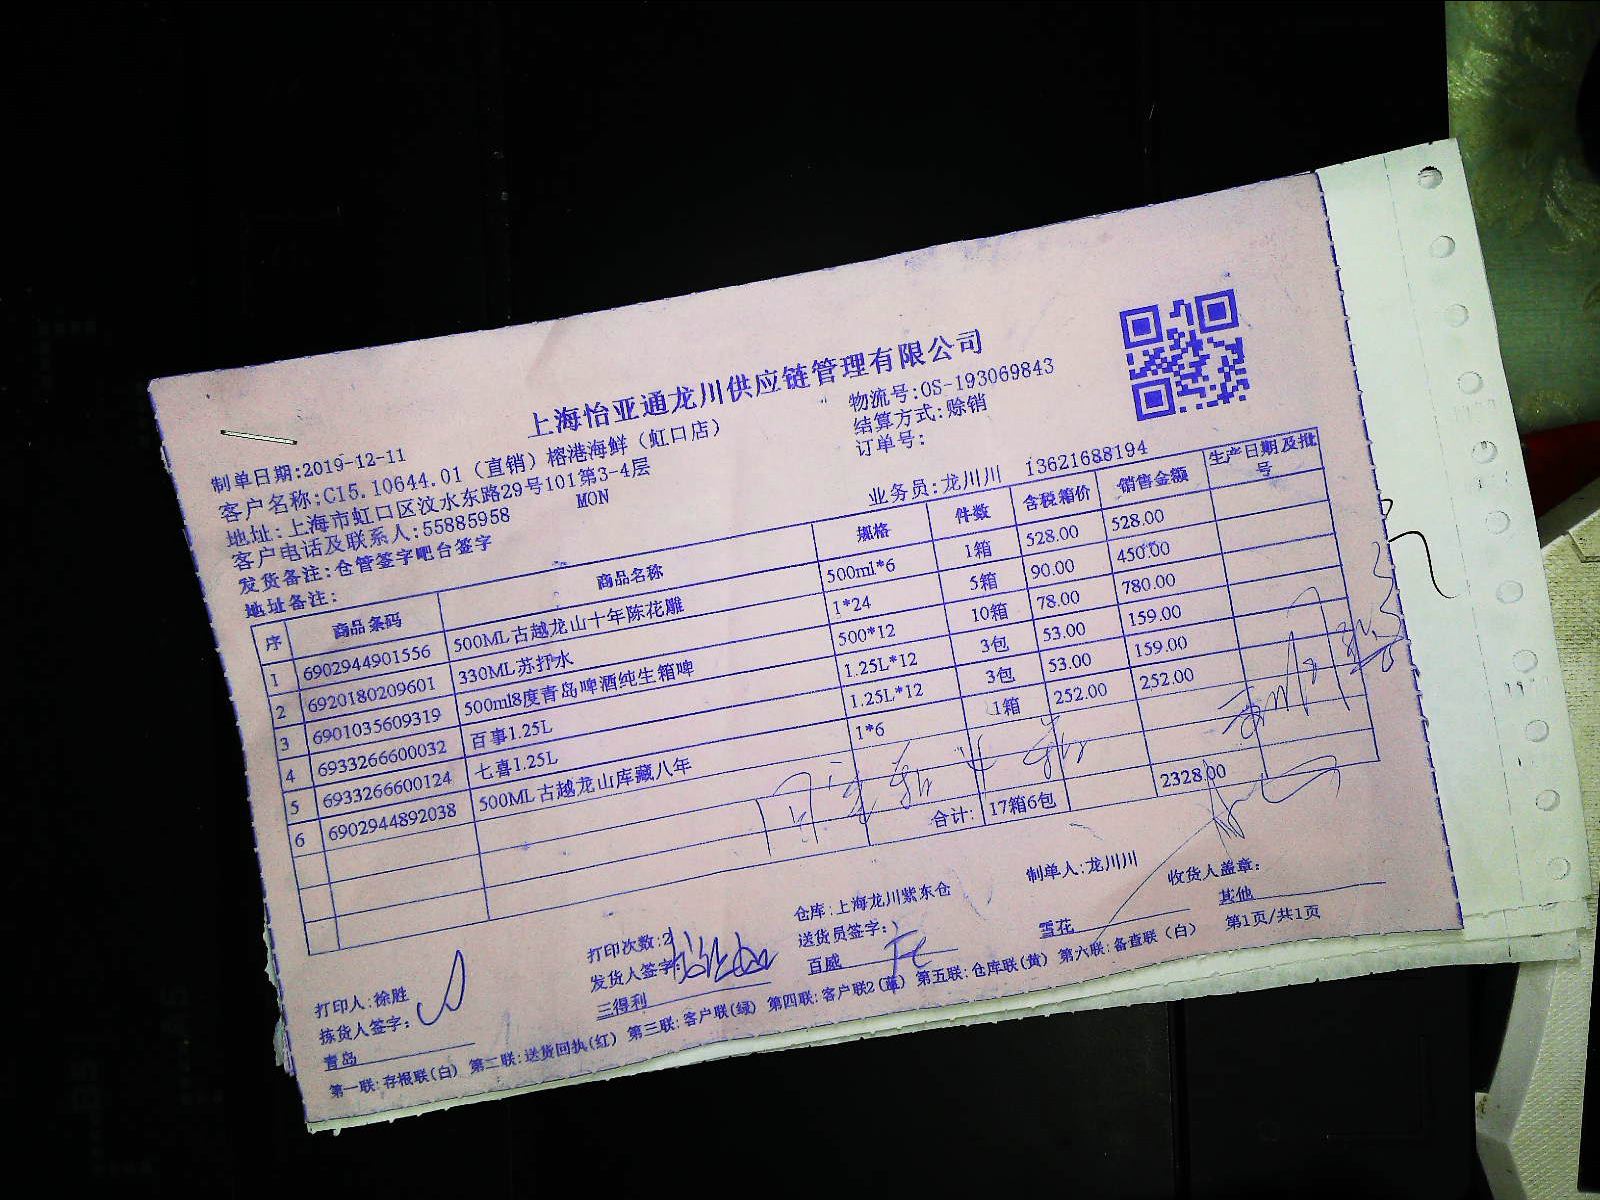 上海怡亚通龙川供应链管理有限公司
制单日期:2019-12-11 物流号:OS-193069843
客户名称:CI5.10644.01（直销）榕港海鲜（虹口店） 结算方式:赊销
地址:上海市虹口区汶水东路29号101第3-4层 订单号:
客户电话及联系人:55885958 MON
发货备注:仓管签字吧台签字 业务员:龙川川 13621688194
地址备注:
序 商品条码 商品名称 规格 件数 含税箱价 销售金额 生产日期及批号
1 6902944901556 500ML古越龙山十年陈花雕 500ml*6 1箱 528.00 528.00
2 6920180209601 330ML苏打水 1*24 5箱 90.00 450.00
3 6901035609319 500ml8度青岛啤酒纯生箱啤 500*12 10箱 78.00 780.00
4 6933266600032 百事1.25L 1.25L*12 3包 53.00 159.00
5 6933266600124 七喜1.25L 1.25L*12 3包 53.00 159.00
6 6902944892038 500ML古越龙山库藏八年 1*6 1箱 252.00 252.00
合计: 17箱6包 2328.00
打印人:徐胜 打印次数:2 仓库:上海龙川紫东仓 制单人:龙川川 收货人盖章:
拣货人签字: 发货人签字: 送货员签字:
青岛 三得利 百威 雪花 其他
第一联:存根联(白) 第二联:送货回执(红) 第三联:客户联(绿) 第四联:客户联2(蓝) 第五联:仓库联(黄) 第六联:备查联（白） 第1页/共1页